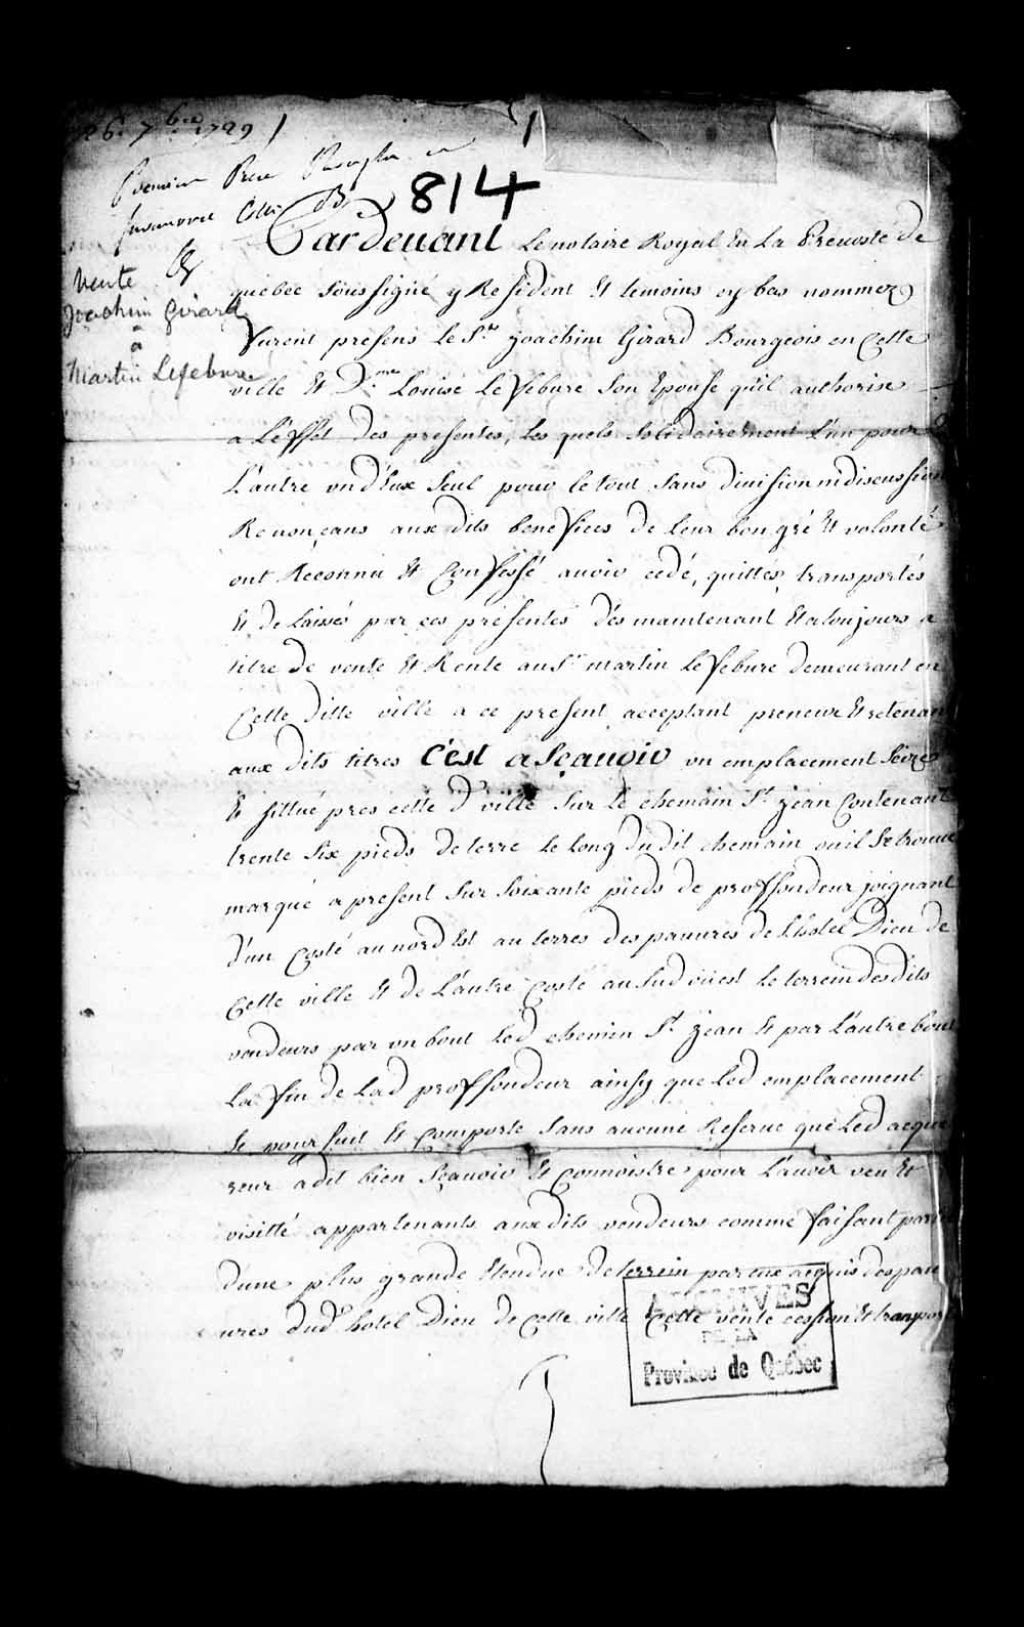 26. 7bre 1729
814
Vente
Joachim Girard
a
Martin Lefebvre
Pardeuant Le notaire Royal En La Preuosté de
quebec soussigné y Resident Et temoins cy bas nommez
Furent presens le Sr. Joachim Girard Bourgeois en Cette
ville Et Dme. Louise Lefebure Son Epouse quil authorise
a L'effet des presentes, les quels solidairement L'un pour
L'autre un d'Eux Seul pour le tout Sans diuision ni discussion
Renonçans aux dits benefices de leur bon gré Et volonté
ont Reconnu Et Confessé auoir cedé, quittés, transportés
Et de Laissés par ces presentes dés maintenant Et a toujours a
titre de vente Et Rente au Sr martin Lefebure demeurant en
Cette ditte ville a ce present acceptant preneur Et retenant
aux dits titres C'est a Sçauoir un emplacement Seize
Et sittué pres cette d. ville Sur Le chemain St. Jean Contenant
trente Six pieds de terre Le Long du dit chemain ou il Se trouue
marqué a present Sur Soixante pieds de proffondeur joignant
d'un Costé au nord Est au terres des pauures de L'hotel Dieu de
Cette ville Et de L'autre Costé au Sud ouest Le terrein des dits
vendeurs par un bout Led chemin St. Jean Et par L'autre bout
La fin de Lad proffondeur ainsy que Led emplacement
Se poursuit Et Comporte Sans aucune Reserue que Led acque
reur a dit bien Sçauoir Et Connoistre pour L'auoir veu Et
visitté appartenants aux dits vendeurs comme faisant partie
dune plus grande Etendue de terrein par eux acquis des pau
ures dud. hotel Dieu de Cette ville Cette vente cession Et transpor
ARCHIVES
DE LA
Province de Québec